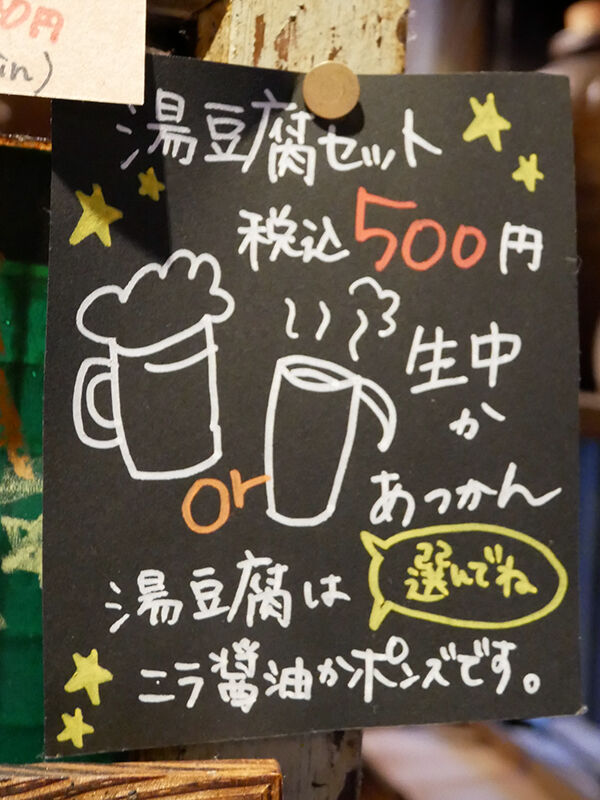 0円
in)
湯豆腐セット
税込500円
生中
か
あつかん
or
選んでね
湯豆腐は
ニラ醤油かポンズです。